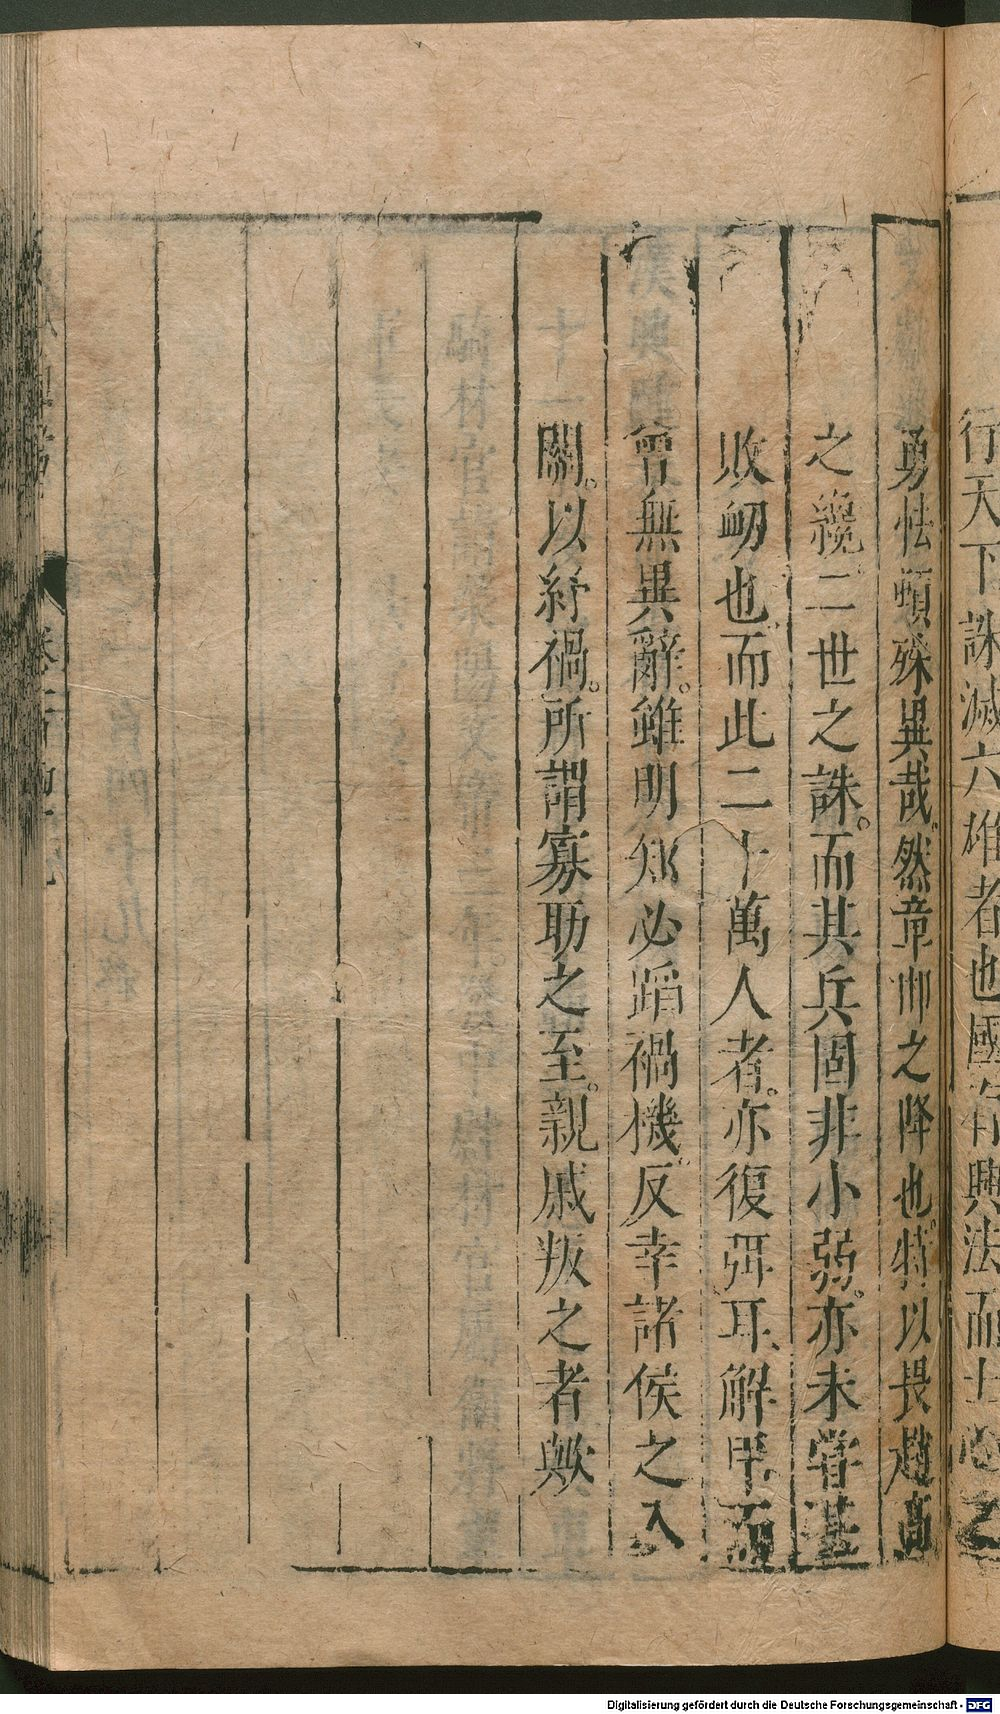 行天下誅滅六雄者也國有興法而士心之
勇怯頓殊異哉然章邯之降也特以畏趙高
之纔二世之誅而其兵固非小弱亦未嘗甚
敗衂也而此二十萬人者亦復弭耳解甲而
曾無異辭雖明知必蹈禍機反幸諸侯之入
關以紓禍所謂寡助之至親戚叛之者歟
卷一百四十九
Digitalisierung gefördert durch die Deutsche Forschungsgemeinschaft - DFG